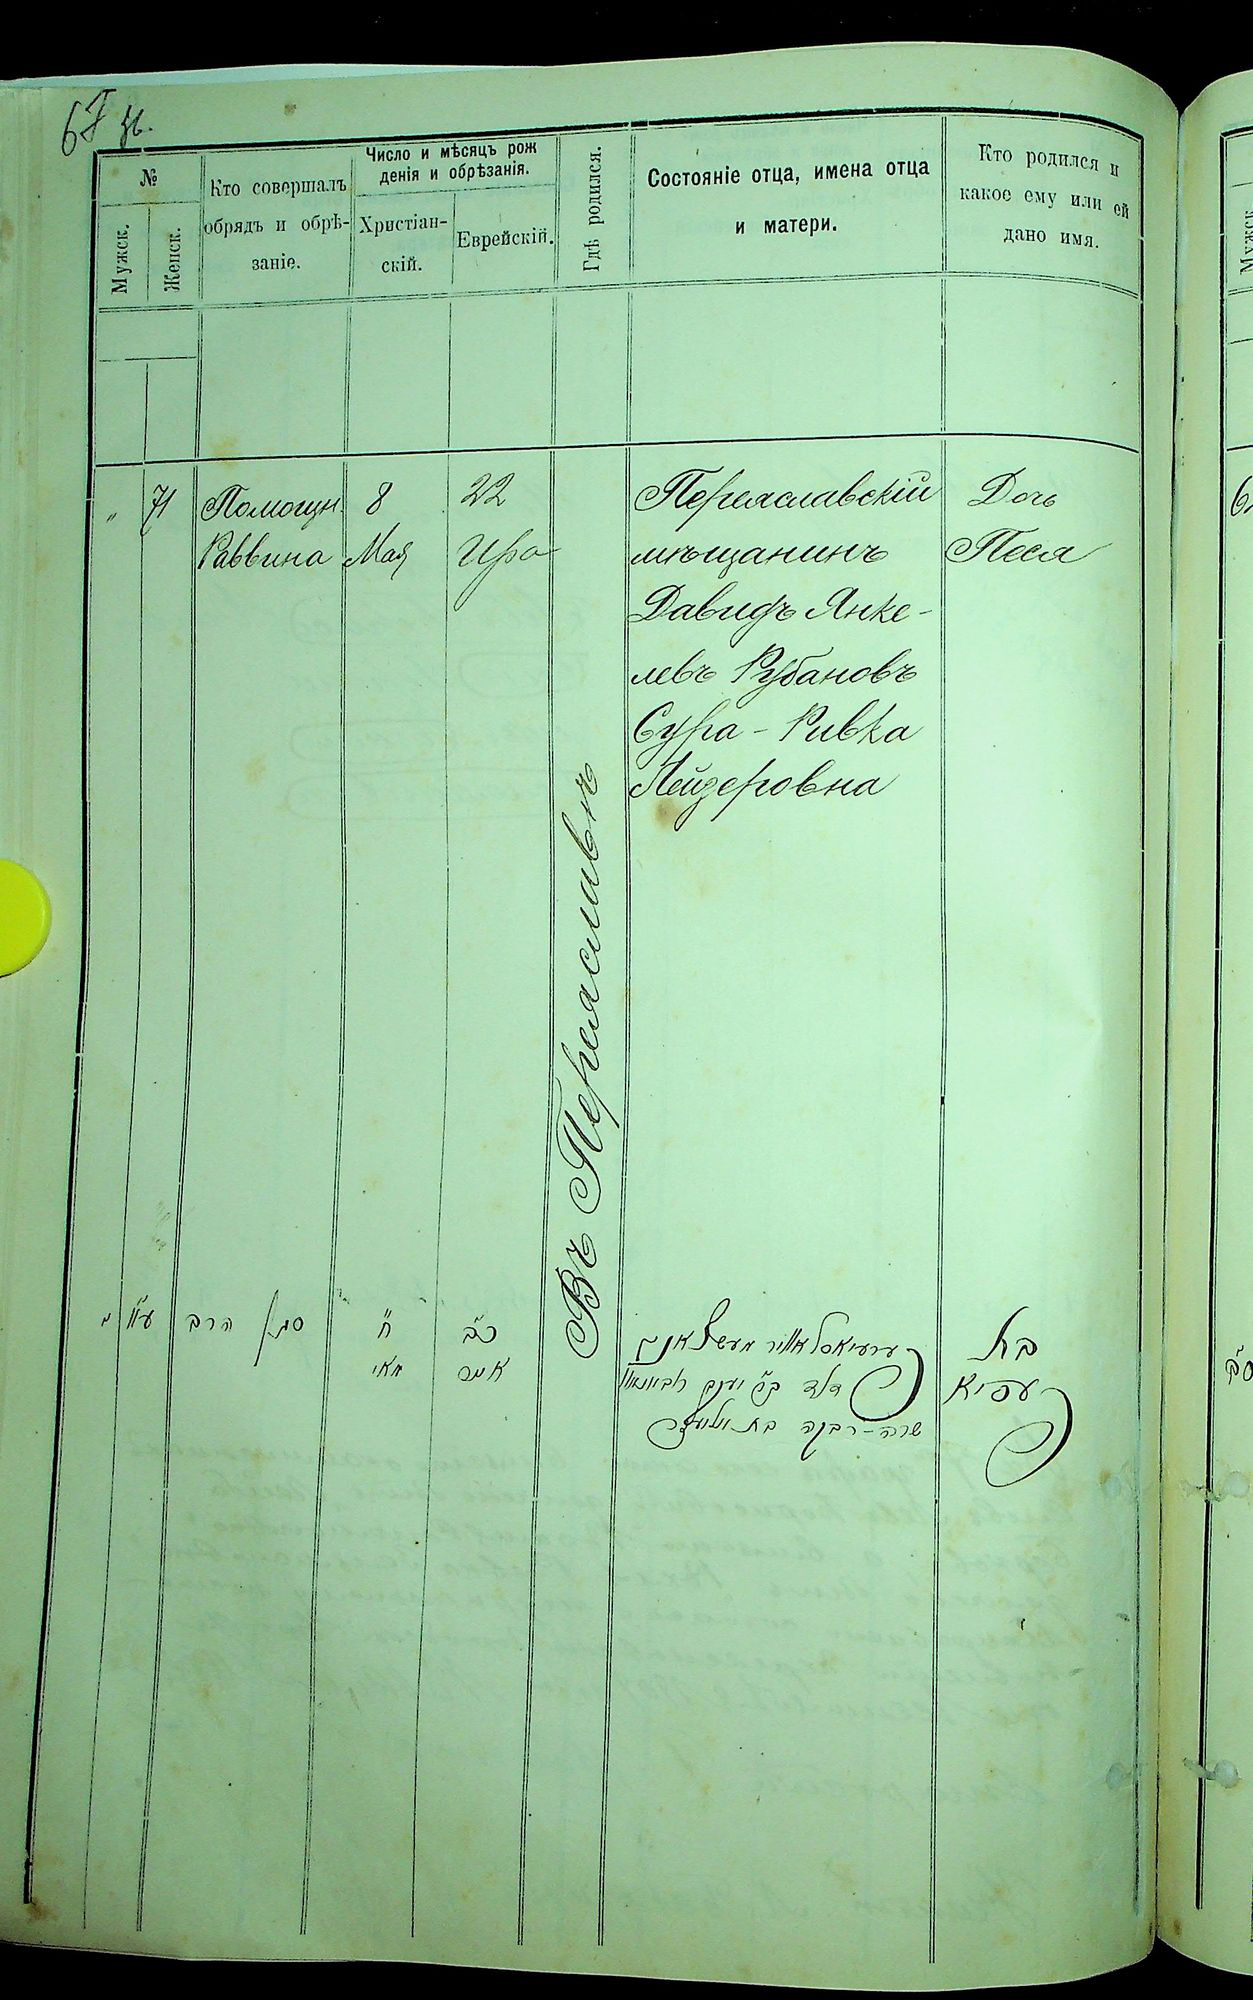 №
Мужск.
Женск.
Кто совершалъ
обрядъ и обрѣ-
заніе.
Число и мѣсяцъ рож
денія и обрѣзанія.
Христіан-
скій.
Еврейскій.
Гдѣ родился.
Состояніе отца, имена отца
и матери.
Кто родился и
какое ему или ей
дано имя.
"
71
Помощн.
Раввина
8
Мая
22
Ира
Въ Переяславлѣ
Переяславскій
мѣщанинъ
Давидъ Янке-
левъ Рубановъ
Сура-Ривка
Лейзеровна
Дочь
Песя
הרב
ח"
מאי
כ"ב
דוד ב"ר יעקב
שרה-רבקה בת
בת
פעסיא
Мужск